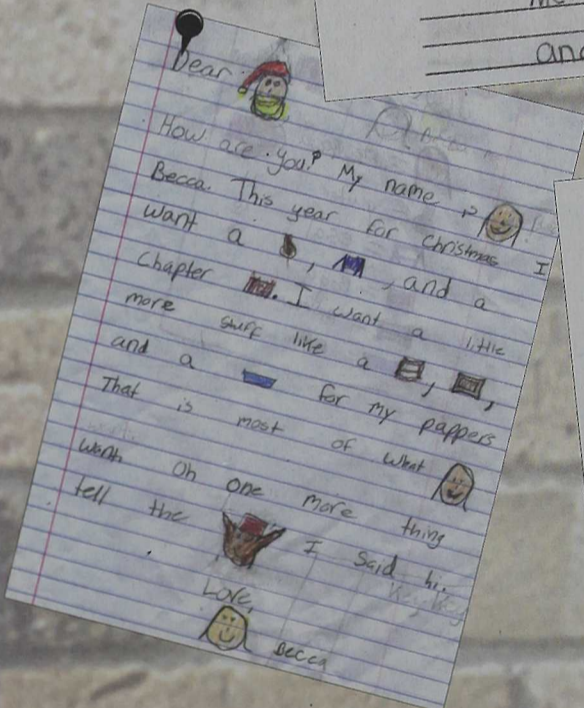 and
Dear
How are you? My name is
Becca. This year for christmas I
want a , , and a
Chapter . I want a little
more stuff like a , ,
and a for my pappers
That is most of what
want. Oh one more thing
tell the I said hi.
Love,
Becca